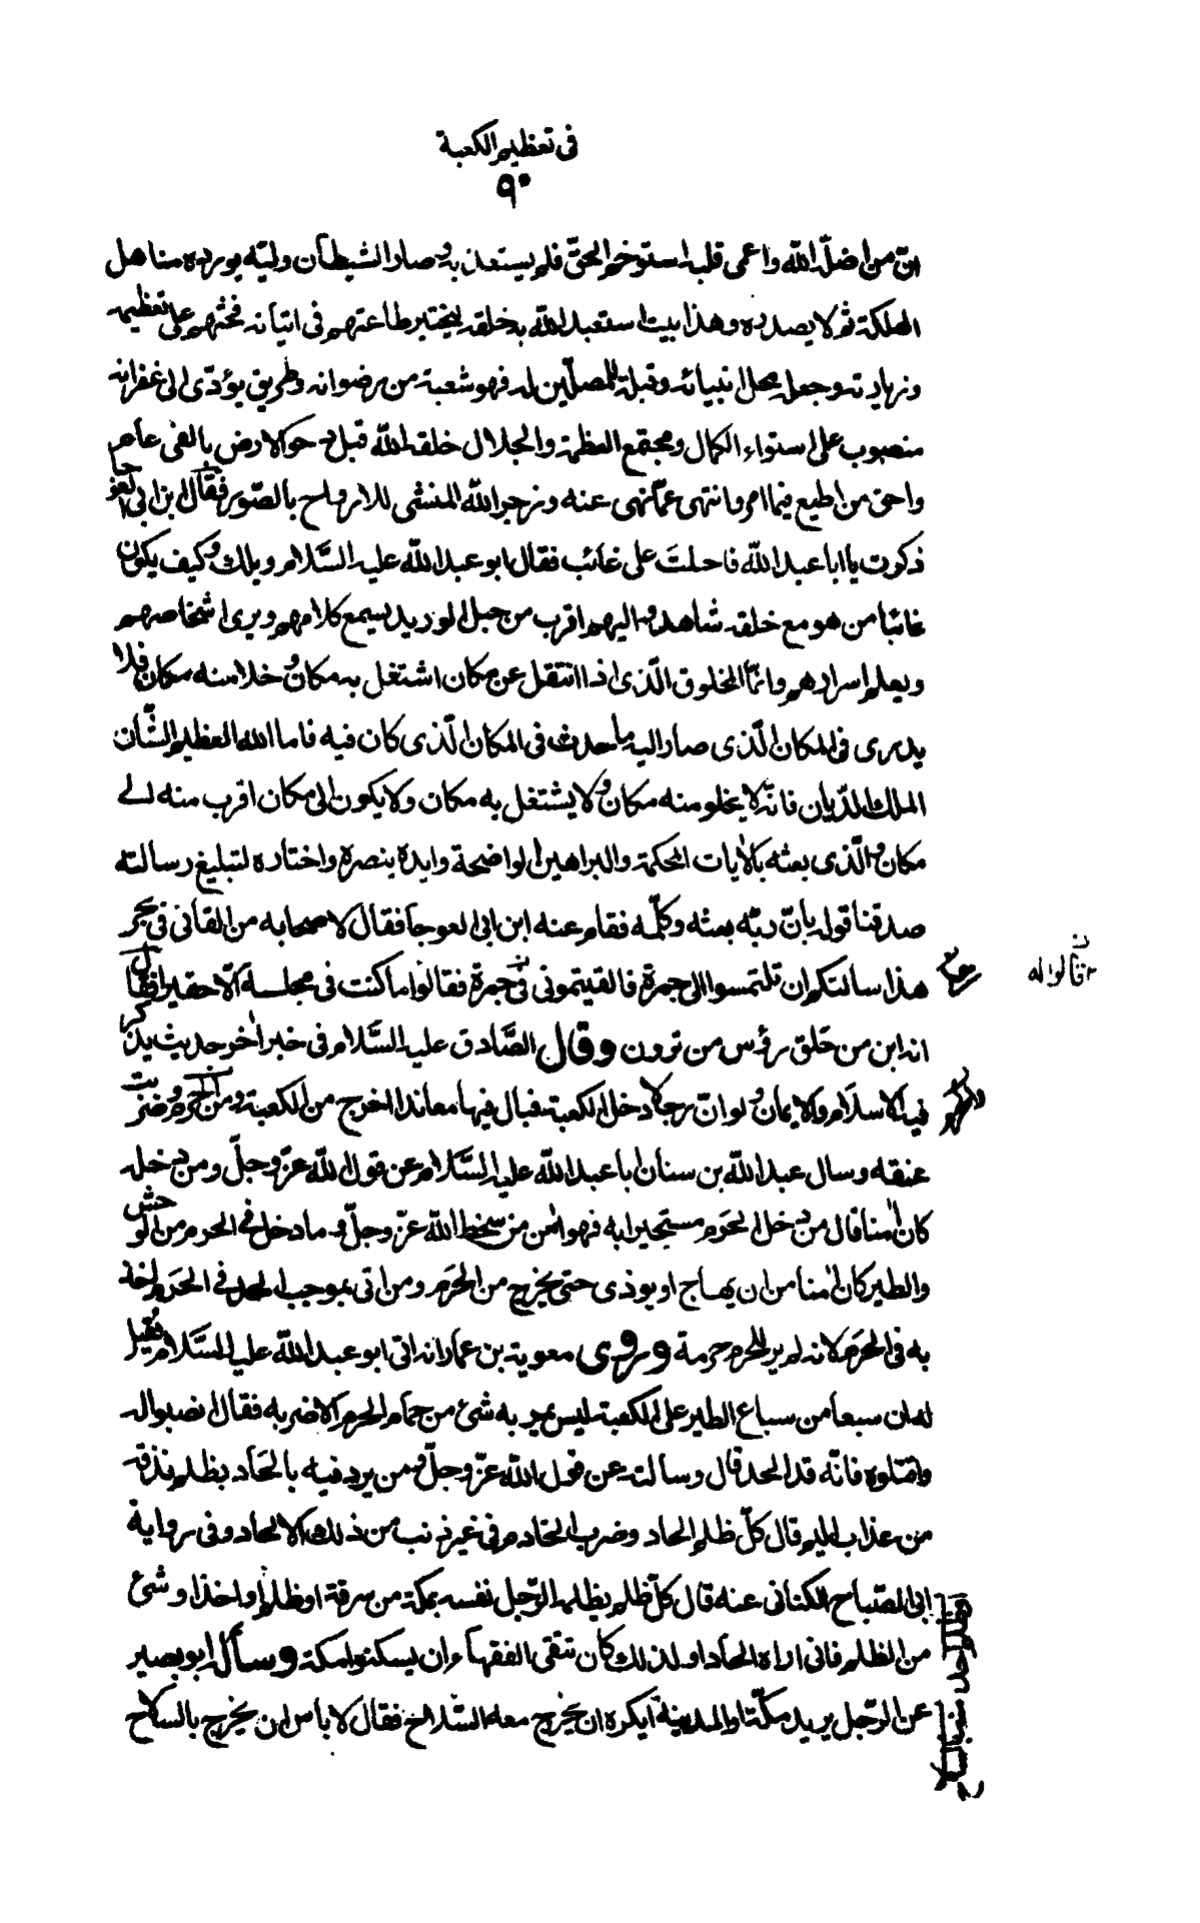 في تعظيم الكعبة
٩٠
انّ من اضلّه اللّه واعمى قلبه استوخم الحقّ فلم يستعذ به وصار الشيطان وليّه يورده مناهل
الهلكة ثم لا يصدره وهذا بيت استعبد اللّه به خلقه ليختبر طاعتهم في اتيانه فحثهم على تعظيمه
وزيارته وجعله محل انبيائه وقبلة للمصلّين له فهو شعبة من رضوانه وطريق يؤدّى الى غفرانه
منصوب على استواء الكمال ومجتمع العظمة والجلال خلقه اللّه قبل دحو الارض بالفى عام
واحق من اطيع فيما امر وانتهى عمّا نهى عنه وزجر اللّه المنشى للارواح بالصّور فقال ابن ابي العوجا
ذكرت يا ابا عبد اللّه فاحلتَ على غائب فقال ابو عبد اللّه عليه السَّلام ويلك وكيف يكون
غائبا من هو مع خلقه شاهد واليهم اقرب من حبل الوريد يسمع كلامهم ويرى اشخاصهم
ويعلم اسرارهم وانّما المخلوق الّذى اذا انتقل عن مكان اشتغل به مكان وخلا منه مكان فلا
يدرى في المكان الّذى صار اليه ما حدث في المكان الّذى كان فيه فاما اللّه العظيم الشّأن
الملك الدّيان فانّه لا يخلو منه مكان ولا يشتغل به مكان ولا يكون الى مكان اقرب منه الى
مكان والّذى بعثه بالايات المحكمة والبراهين الواضحة وايده بنصره واختاره لتبليغ رسالته
صدقنا قوله بانّ ربّه بعثه وكلّمه فقام عنه ابن ابى العوجا فقال لاصحابه من القانى في بحر
هذا سالتكم ان تلتمسوا لى خمرة فالقيتمونى في جمرة فقالوا ما كنت في مجلسه الّا حقيرا فقال
قالوا له
انه ابن من حلق رؤس من ترون وقال الصَّادق عليه السَّلام في خبر اخر حديث يذكر
فيه الاسلام والايمان ولو انّ رجلا دخل الكعبة فبال فيها معاندا اخرج من الكعبة ومن الحرم وضربت
عنقه وسال عبد اللّه بن سنان ابا عبد اللّه عليه السَّلام عن قول اللّه عزّ وجلّ ومن دخله
كان امنا قال من دخل الحرم مستجيرا به فهو امن من سخط اللّه عزّ وجلّ وما دخل في الحرم من الوحش
والطير كان امنا من ان يهاج او يوذى حتى يخرج من الحرم ومن اتى بموجب الحد في الحرم اخذ
به في الحرم لانه لم ير للحرم حرمة وروى معوية بن عمار انه اتى ابو عبد اللّه عليه السَّلام فقيل
له ان سبعا من سباع الطير على الكعبة ليس يمر به شئ من حمام الحرم الا ضربه فقال انصبوا له
واقتلوه فانّه قد الحد قال وسالته عن قول اللّه عزّ وجلّ ومن يرد فيه بالحاد بظلم نذقه
من عذاب اليم قال كلّ ظلم الحاد وضرب الخادم في غير ذنب من ذلك الالحاد وفي رواية
ابى الصّباح الكنانى عنه قال كلّ ظلم يظلمه الرّجل نفسه بمكة من سرقة او ظلم احد او شئ
من الظلم فانى اراه الحادا ولذلك كان تتقى الفقهاء ان يسكنوا مكة وسأل ابو بصير
عن الرّجل يريد مكّة او المدينة ايكره ان يخرج معه السّلاح فقال لا باس ان يخرج بالسلاح